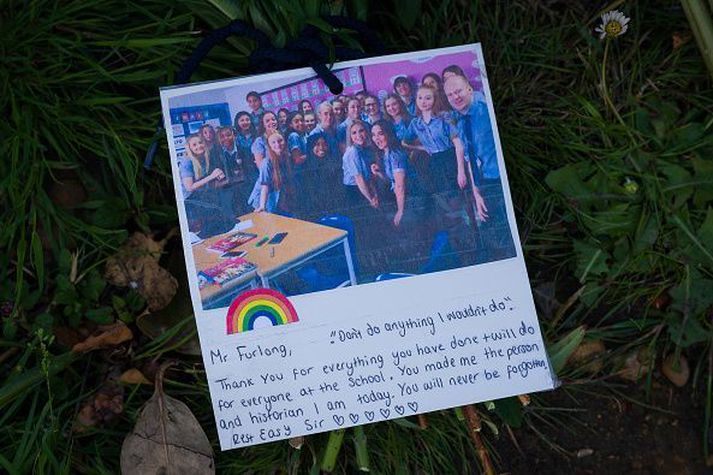 "Don't do anything I wouldn't do".
Mr Furlong,
Thank you for everything you have done + will do
for everyone at the School. You made me the person
and historian I am today. You will never be forgotten,
Rest Easy Sir ♡ ♡ ♡ ♡ ♡ ♡